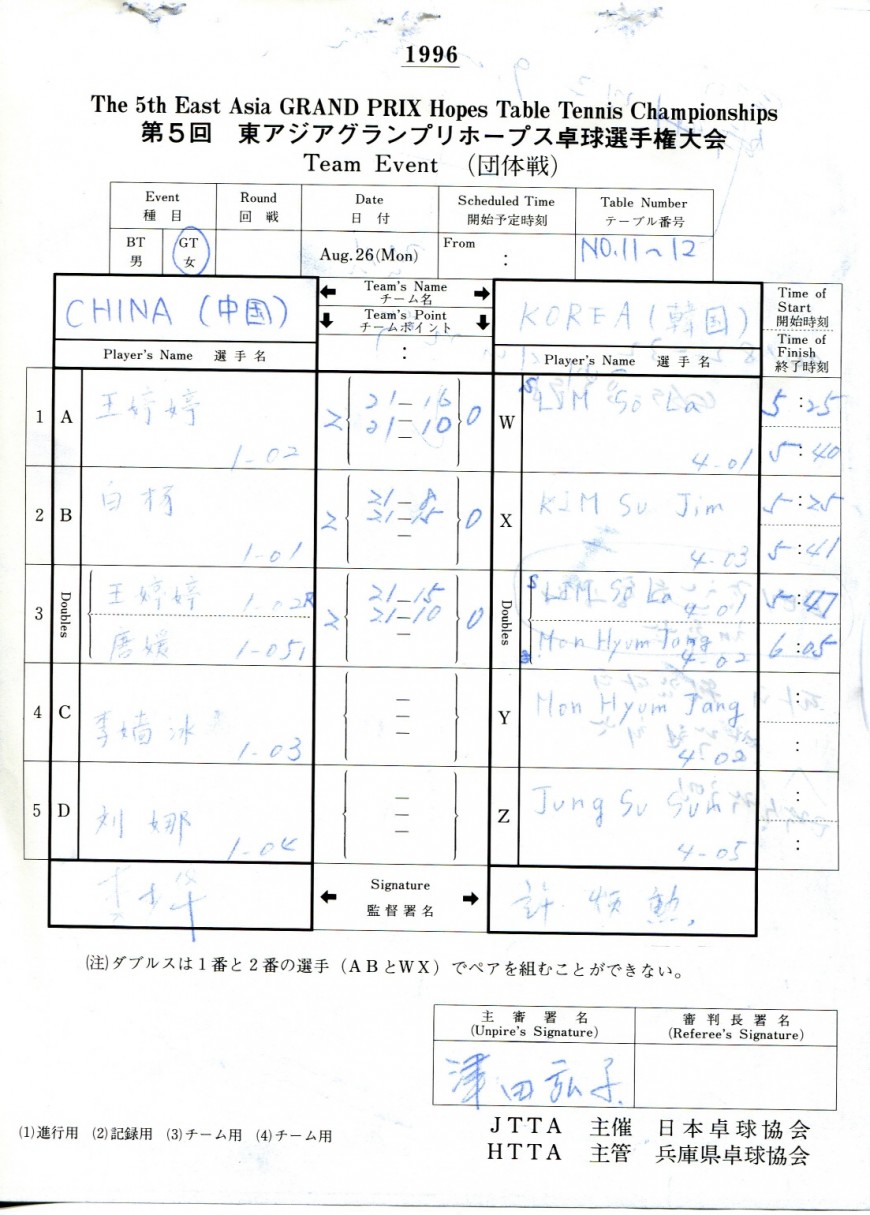 1996
The 5th East Asia GRAND PRIX Hopes Table Tennis Championships
第5回 東アジアグランプリホープス卓球選手権大会
Team Event (団体戦)
Event 種目
Round 回戦
Date 日付
Scheduled Time 開始予定時刻
Table Number テーブル番号
BT 男
GT 女
Aug.26(Mon)
From :
NO.11~12
CHINA (中国)
← Team's Name チーム名 →
KOREA (韓国)
Time of Start 開始時刻
↓ Team's Point チームポイント ↓
:
Time of Finish 終了時刻
Player's Name 選手名
Player's Name 選手名
1 A 王婷婷 1-02
2 21-16 0
21-10
—
W LIM So La 4-01
5:25
5:40
2 B 白杨 1-01
2 21-8 0
21-15
—
X KIM Su Jim 4-03
5:25
5:41
3 Doubles 王婷婷 1-02R
唐媛 1-051
2 21-15 0
21-10
—
Doubles LIM So La 4-01
Mon Hyum Jang 4-02
5:47
6:05
4 C 李 冰 1-03
—
—
—
Y Mon Hyum Jang 4-02
:
:
5 D 刘娜 1-04
—
—
—
Z Jung Su Sum 4-05
:
:
← Signature 監督署名 →
許 炳 勲
(注)ダブルスは1番と2番の選手(ABとWX)でペアを組むことができない。
主審署名 (Unpire's Signature)
審判長署名 (Referee's Signature)
津田弘子
(1)進行用 (2)記録用 (3)チーム用 (4)チーム用
JTTA 主催 日本卓球協会
HTTA 主管 兵庫県卓球協会